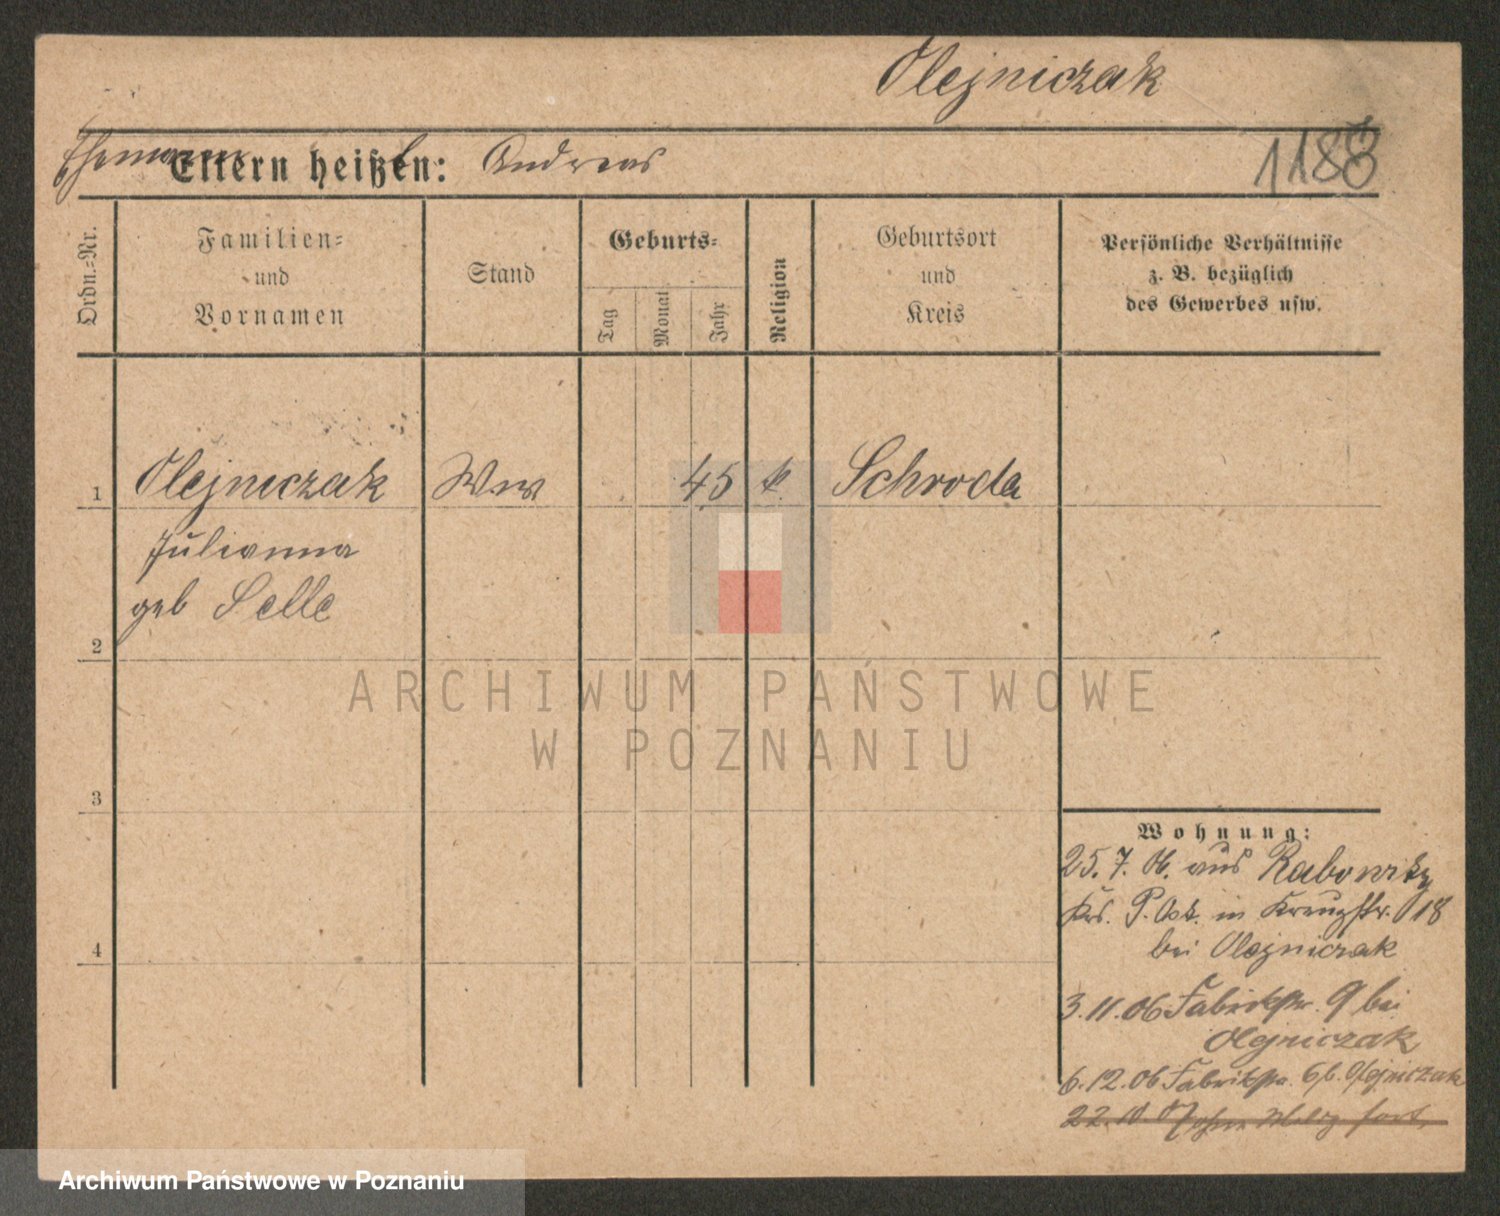 Olejniczak
Ehemann Eltern heißen: Andreas
1188
Ordn.=Nr.
Familien=
und
Vornamen
Stand
Geburts=
Tag
Monat
Jahr
Religion
Geburtsort
und
Kreis
Persönliche Verhältnisse
z. B. bezüglich
des Gewerbes usw.
1 Olejniczak Wwe 45 k. Schroda
Julianna
geb Selle
2
3
4
Wohnung:
25. 7. 06. aus
Krs. P. Ost. in Kreuzstr. 18
bei Olejniczak
3. 11. 06 Fabrikstr. 9 bei
Olejniczak
6. 12. 06 Fabrikstr. 6 b. Olejniczak
22. 10. 07 ohne Meldg fort.
ARCHIWUM PAŃSTWOWE
W POZNANIU
Archiwum Państwowe w Poznaniu